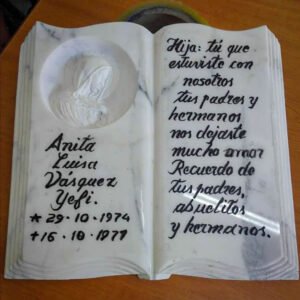 Anita
Luisa
Vásquez
Yefi.
★ 29 · 10 · 1974
+ 16 · 10 · 1977
Hija: tú que
estuviste con
nosotros
tus padres y
hermanos
nos dejaste
mucho amor
Recuerdo de
tus padres,
abuelitos
y hermanos.